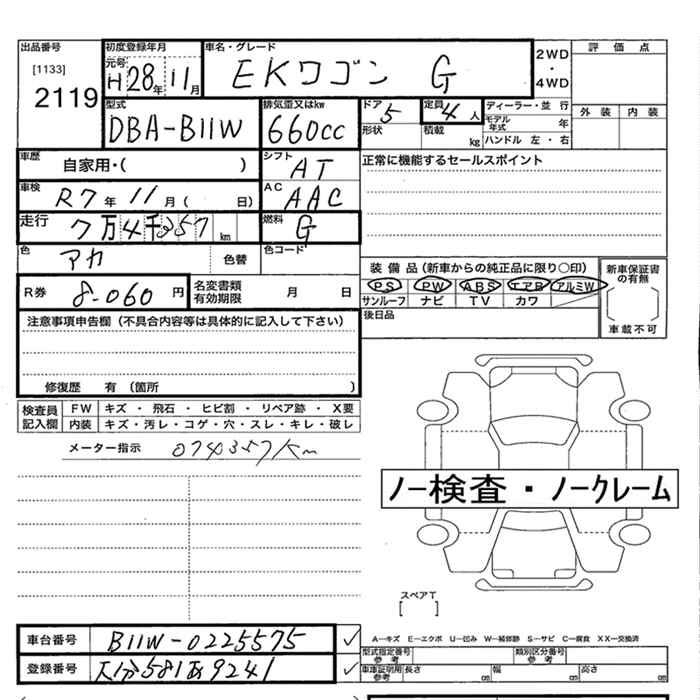 出品番号 初度登録年月 車名・グレード 2WD 評価点
[1133] 元号 EKワゴン G ・
2119 H28年11月 4WD
型式 排気量又はkw ドア 定員 ディーラー・並行 外装 内装
DBA-B11W 660cc 5 4人 モデル年式 年
形状 積載 kg ハンドル 左・右
車歴 自家用・( ) シフト AT 正常に機能するセールスポイント
車検 R7年11月( 日) AC AAC
走行 7万4千357km 燃料 G
色 アカ 色替 色コード
装備品(新車からの純正品に限り〇印) 新車保証書の有無
R券 8-060円 名変書類有効期限 月 日 PS PW ABS エアB アルミW
サンルーフ ナビ TV カワ
注意事項申告欄(不具合内容等は具体的に記入して下さい) 後日品 車載不可
修復歴 有(箇所 )
検査員記入欄 FW キズ・飛石・ヒビ割・リペア跡・X要
内装 キズ・汚レ・コゲ・穴・スレ・キレ・破レ
メーター指示 074357Km
ノー検査・ノークレーム
スペアT
[ ]
車台番号 B11W-0225575 ✓ A―キズ E―エクボ U―凹み W―補修跡 S―サビ C―腐食 XX―交換済
型式指定番号 参考 類別区分番号 参考
登録番号 大分581あ9241 ✓ 車庫証明用 参考 長さ cm 幅 cm 高さ cm